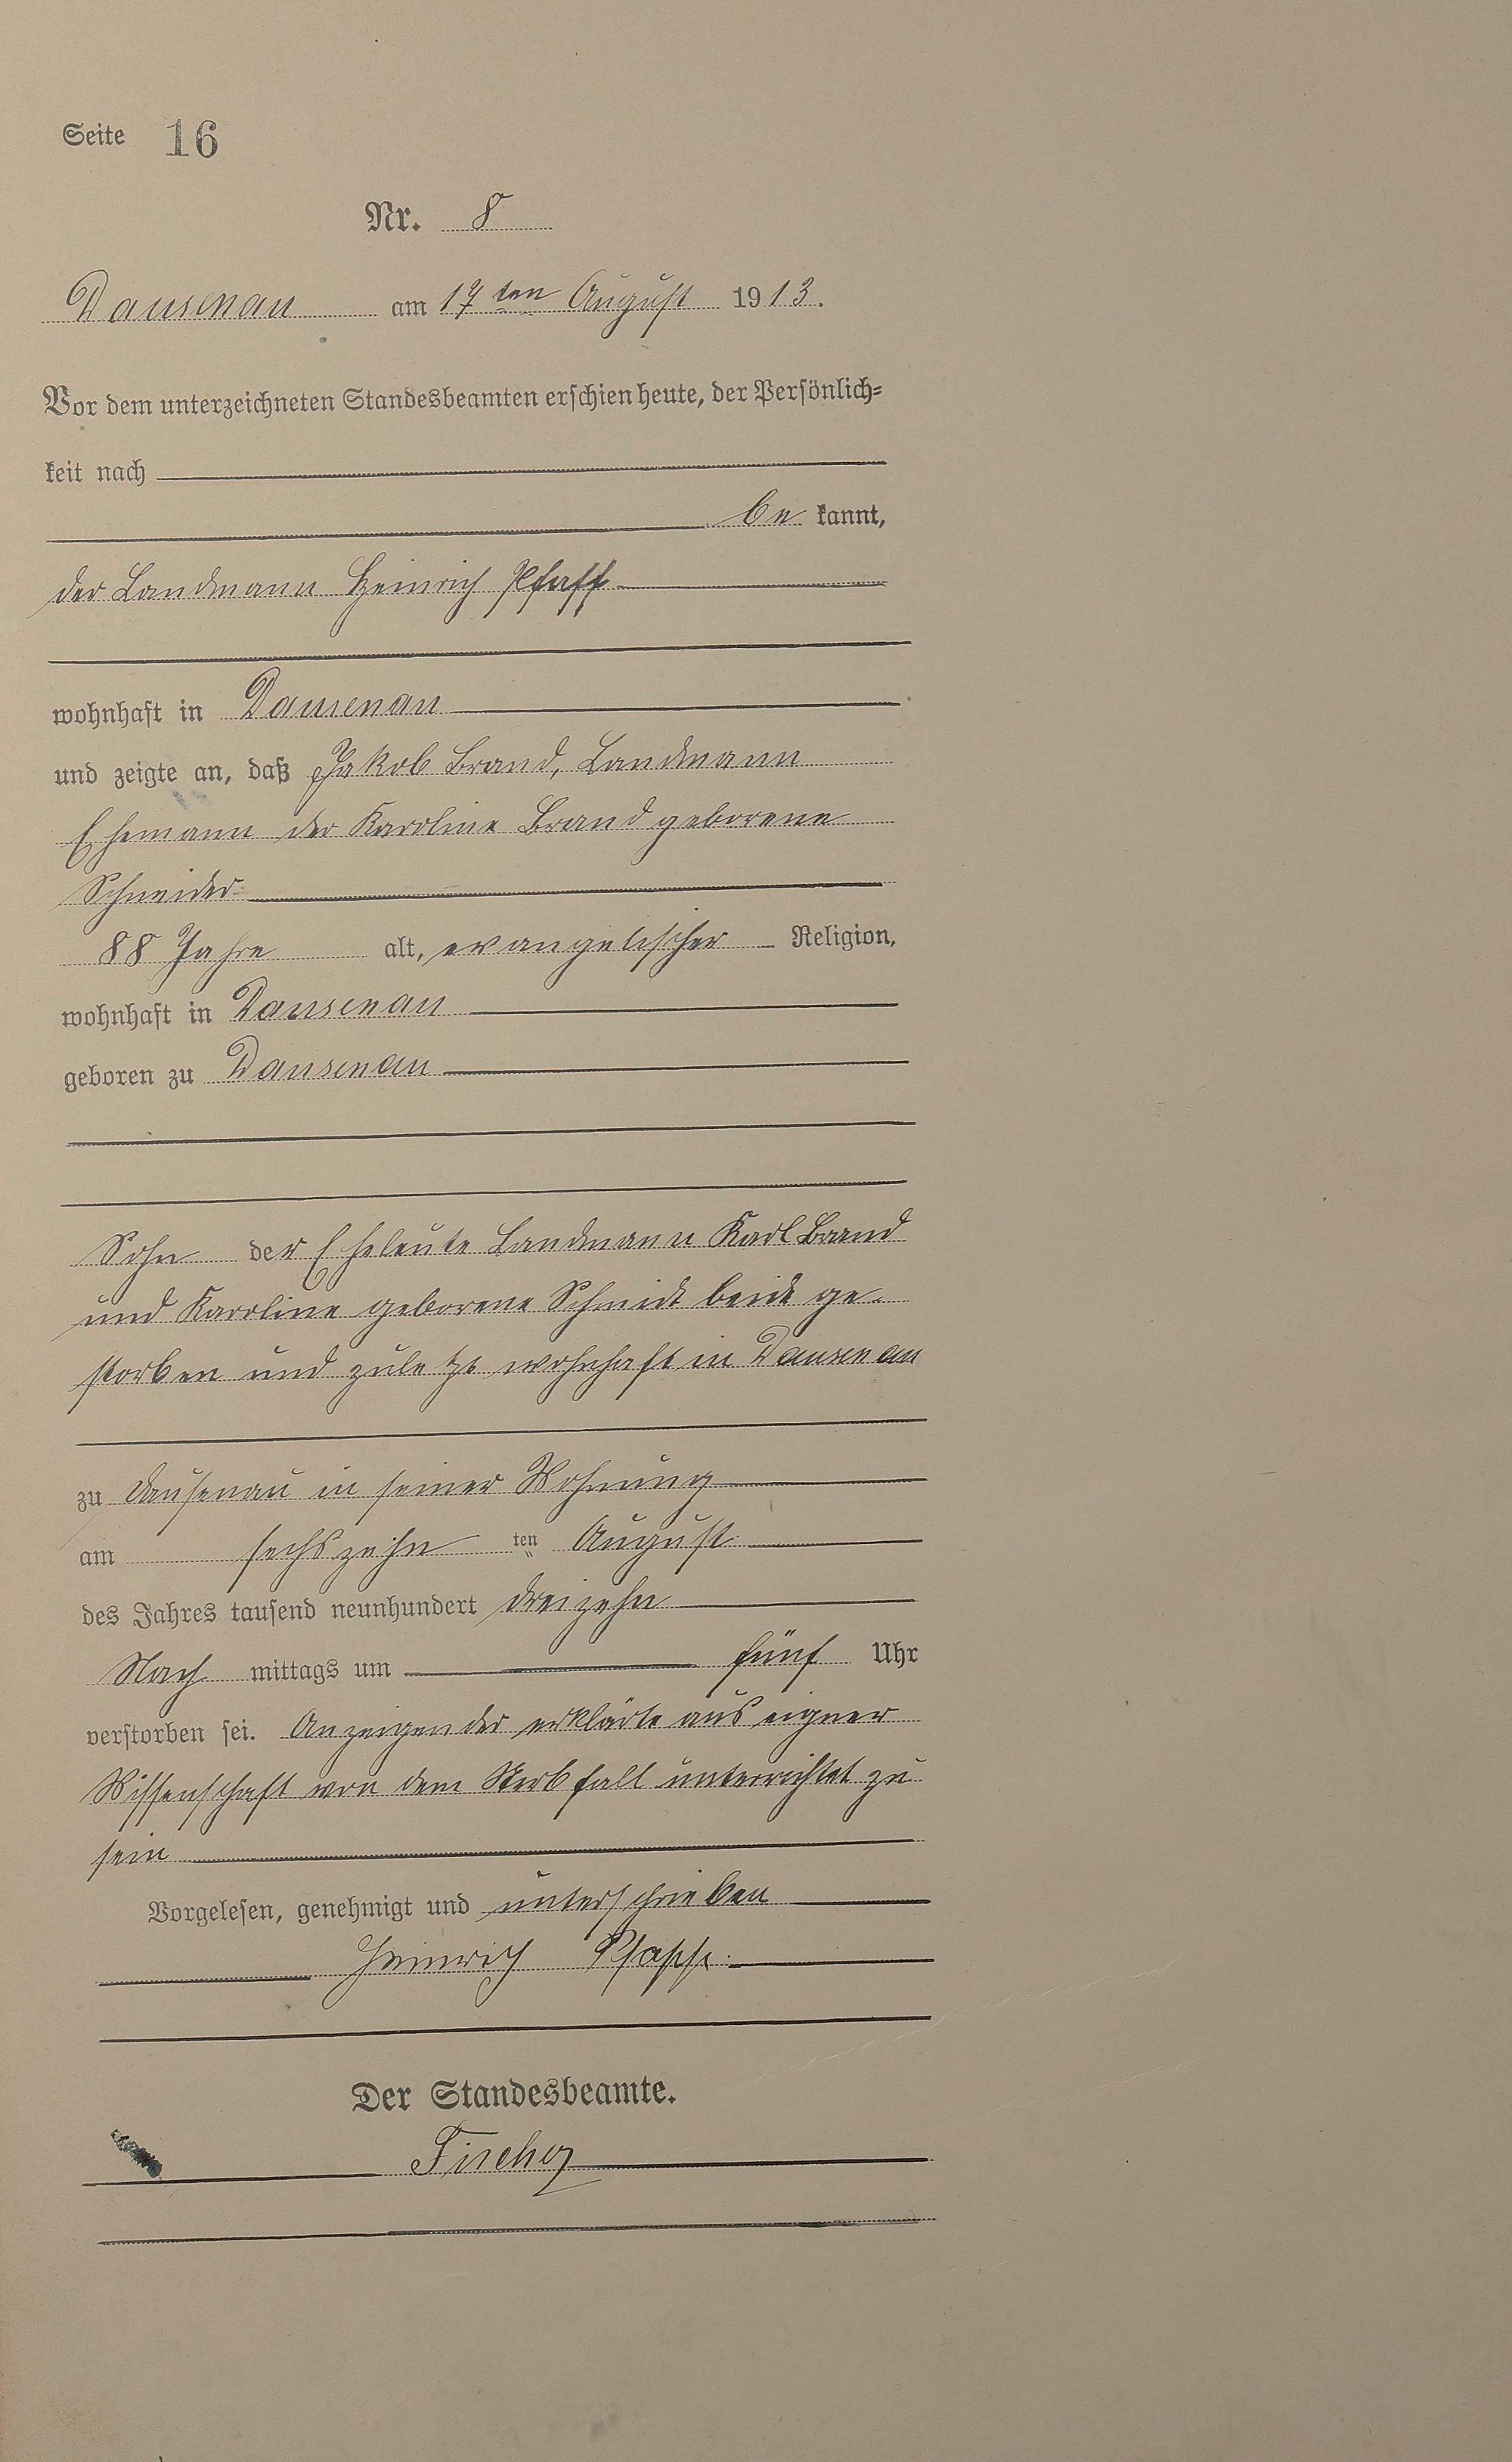 Seite 16
Nr. 8
Dausenau am 17ten August 1913.
Vor dem unterzeichneten Standesbeamten erschien heute, der Persönlich-
keit nach
be kannt,
der Landmann Heinrich Pfaff
wohnhaft in Dausenau
und zeigte an, daß Jakob Brand, Landmann
Ehemann der Karoline Brand geborene
Schneider
88 Jahre alt, evangelischer Religion,
wohnhaft in Dausenau
geboren zu Dausenau
Sohn der Eheleute Landmann Karl Brand
und Karoline geborene Schmidt beide ge-
storben und zuletzt wohnhaft in Dausenau
zu Dausenau in seiner Wohnung
am sechszehn ten August
des Jahres tausend neunhundert dreizehn
Nach mittags um fünf Uhr
verstorben sei. Anzeigender erklärte aus eigner
Wissenschaft von dem Sterbfall unterrichtet zu
sein
Vorgelesen, genehmigt und unterschrieben
Heinrich Pfaff.
Der Standesbeamte.
Fischer